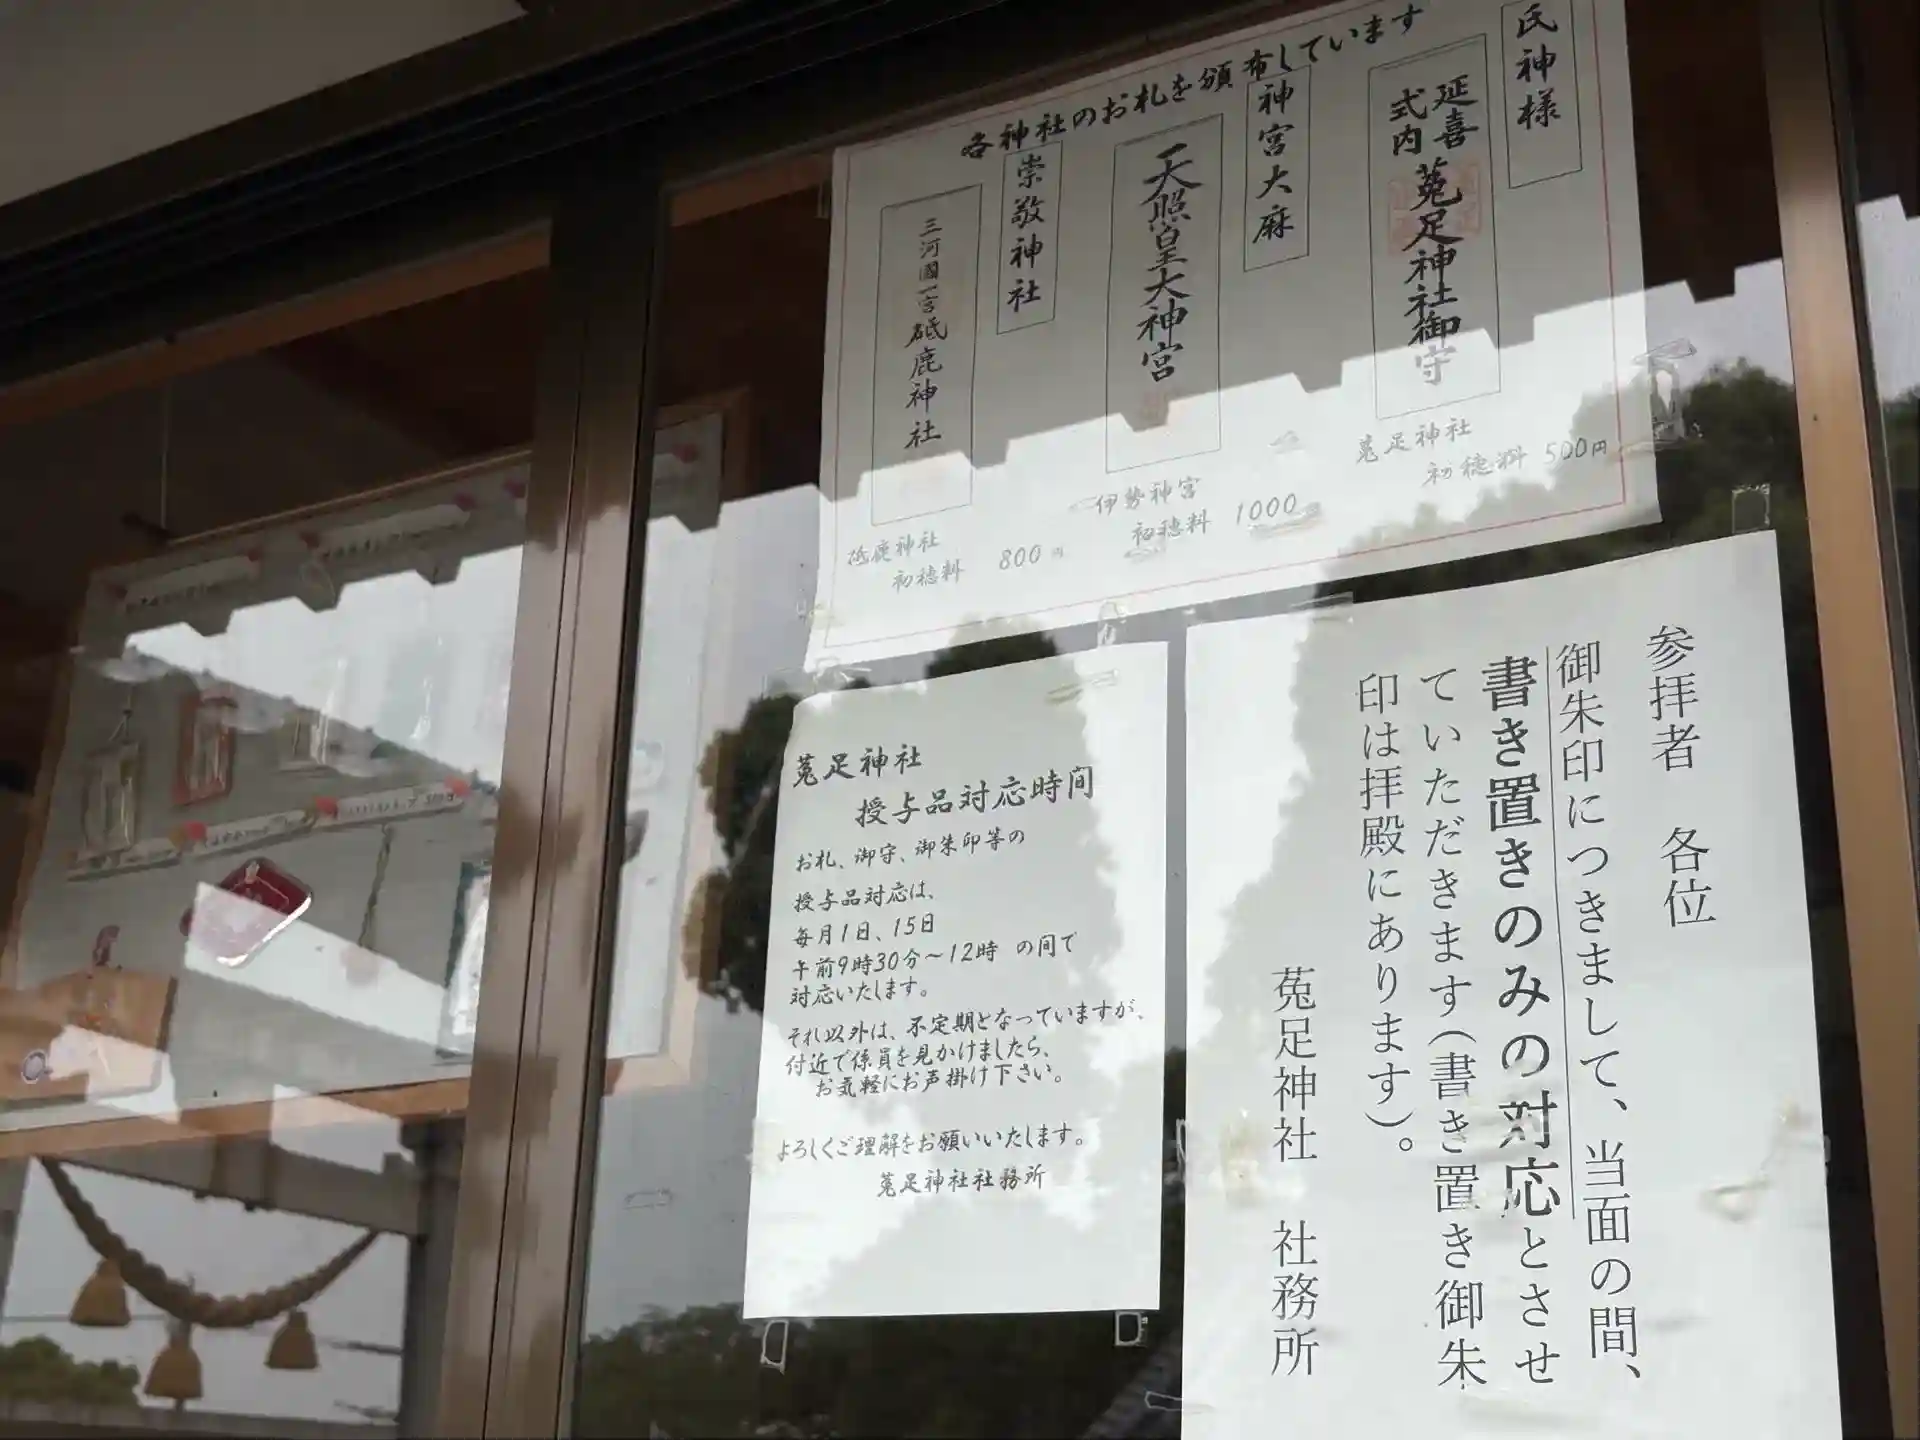 各神社のお札を頒布しています
氏神様
延喜
式内
菟足神社御守
菟足神社
初穂料 500円
神宮大麻
天照皇大神宮
伊勢神宮
初穂料 1000円
崇敬神社
三河國一宮砥鹿神社
砥鹿神社
初穂料 800円
参拝者 各位
御朱印につきまして、当面の間、
書き置きのみの対応とさせ
ていただきます(書き置き御朱
印は拝殿にあります)。
菟足神社 社務所
菟足神社
授与品対応時間
お札、御守、御朱印等の
授与品対応は、
毎月1日、15日
午前9時30分~12時 の間で
対応いたします。
それ以外は、不定期となっていますが、
付近で係員を見かけましたら、
お気軽にお声掛け下さい。
よろしくご理解をお願いいたします。
菟足神社社務所